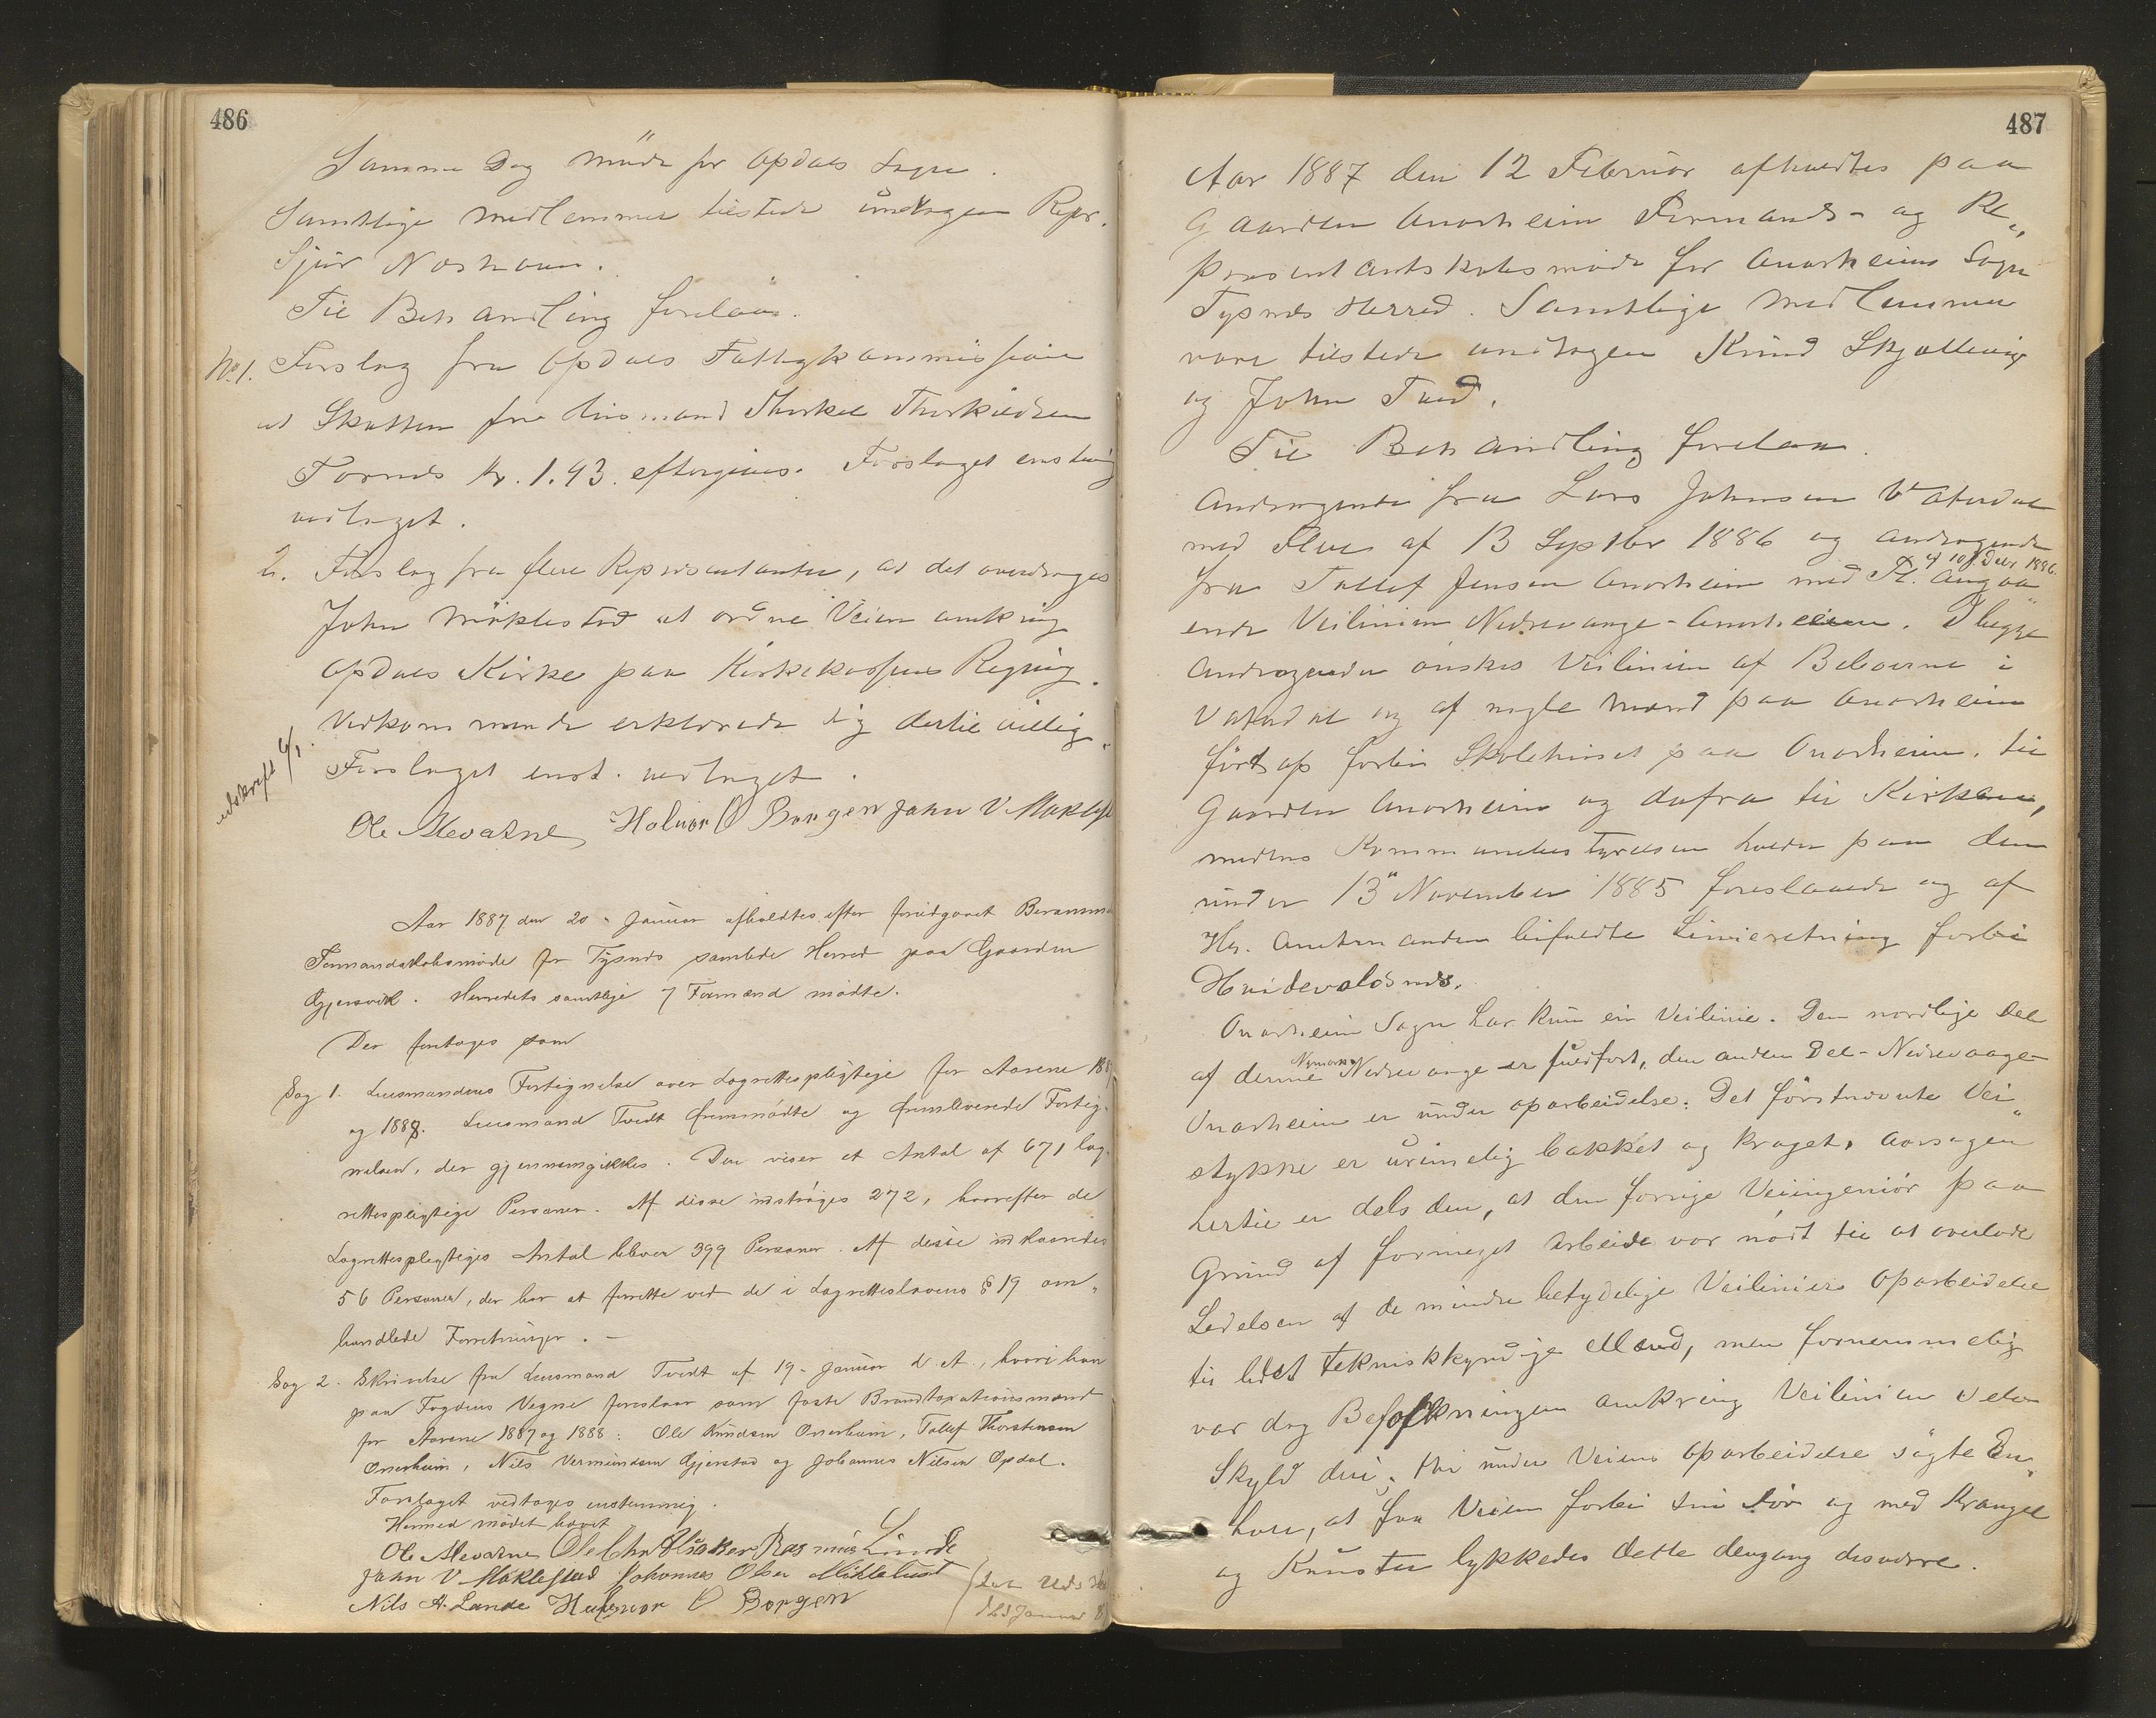 486
Samme Dag möde for Opdals Sogn.
Samtlige Medlemmer tilstede undtagen Repr.
Sjur Næshavn.
Til Behandling forelaa.
No 1. Forslag fra Opdals Fattigkommission
at Skatten fra Huusmand Thorkel Thorkildsen
Tornæs Kr. 1.43. eftergives. Forslaget enstemig
vedtaget.
2. Forslag fra flere Repræsentanter, at det overdrages
John Möklestad at ordne Veien omkring
Opdals Kirke paa Kirkekassens Regning.
Vedkommende erklærede sig dertil villig.
Forslaget enst. vedtaget.
udskrift 6/1.
Ole Mevatne Halvor O Borgen John V. Möklest
Aar 1887 den 20. Januar afholdtes efter forudgaaet Beramme
Formandskabsmöde for Tysnæs samlede Herred paa Gaarden
Gjersvik. Herredets samtlige 7 Formænd mödte.
Der foretoges som
Sag 1. Lensmandens Fortegnelse over Lagrettespligtige for Aarene 188
og 1888. Lensmand Tvedt fremmödte og fremleverede Forteg-
nelsen, der gjennemgikkes. Den viser et Antal af 671 lag-
rettespligtige Personer. Af disse udströges 272, hvorefter de
Lagrettespligtiges Antal bliver 399 Personer. Af disse udkaaredes
56 Personer, der har at forrette ved de i Lagretteslovens § 19 om-
handlede Forretninger. –
Sag 2. Skrivelse fra Lensmand Tvedt af 19. Januar d. A., hvori han
paa Fogdens Vegne foreslaar som faste Brandtaxationsmænd
for Aarene 1887 og 1888: Ole Knudsen Onarheim, Tollef Thorstensen
Onarheim, Nils Vermundsen Gjerstad og Johannes Nilsen Opdal.
Forslaget vedtoges enstemmig.
Hermed mödet hævet
Ole Mevatne Ole Chr Alsaker Rasmus Lunde
John V. Möklestad Johannes Olsen Miklatust
Nils A. Lande Halvor O Borgen
487
Aar 1887 den 12 Februar afholdtes paa
Gaarden Onarheim Formands- og Re„
præsentantskabsmöde for Onarheims Sogn
Tysnæs Herred. Samtlige Medlemmer
vare tilstede undtagen Knud Skjællevig
og John Tved.
Til Behandling forelaa.
Andragende fra Lars Johnsen Vaterdal
med Flere af 13 Septbr 1886 og Andragende
fra Tollef Jensen Onarheim med Fl. af 10 Decbr 1886. angaa„
ende Veilinien Nedrevaage-Onarheim. I begge
Andragender önskes Veilinien af Beboerne i
Vaterdal og af nogle Mænd paa Onarheim
fört op forbi Skolehuset paa Onarheim, til
Gaarden Onarheim og derfra til Kirken,
medens Kommunebestyrelsen holder paa den
under 13de November 1885 foreslaaede og af
Hr. Amtmanden bifaldte Linieretning forbi
Hvidevalsnæs.
Onarheim Sogn har kun ein Veilinie. Den nordlige Del
af denne Nymark-Nedrevaage er fuldfört, den anden Del - Nedrevaage-
Onarheim er under oparbeidelse. Det förstnævnte Vei„
stykke er urimelig bakket og kroget, aarsagen
hertil er dels den, at den forrige Veiingeniör paa
Grund af formeget Arbeide var nödt til at overlade
Ledelsen af de mindre betydelige Veiliniers Oparbeidelse
til lidet tekniskkyndige Mænd, men fornemmelig
var dog Befolkningen omkring Veilinien selv
Skyld deri; thi under Veiens Oparbeidelse sögte En„
hver, at faa Veien forbi sin Dör og med Krangel
og Kunster lykkedes dette dengang desværre.